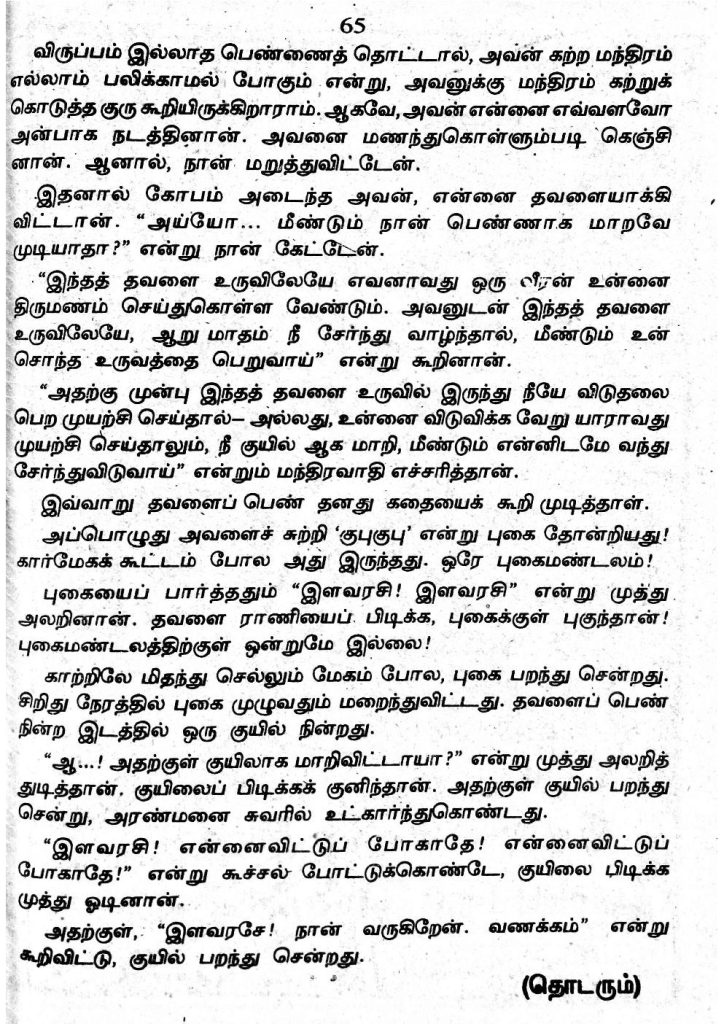 65
விருப்பம் இல்லாத பெண்ணைத் தொட்டால், அவன் கற்ற மந்திரம்
எல்லாம் பலிக்காமல் போகும் என்று, அவனுக்கு மந்திரம் கற்றுக்
கொடுத்த குரு கூறியிருக்கிறாராம். ஆகவே, அவன் என்னை எவ்வளவோ
அன்பாக நடத்தினான். அவனை மணந்துகொள்ளும்படி கெஞ்சி
னான். ஆனால், நான் மறுத்துவிட்டேன்.
இதனால் கோபம் அடைந்த அவன், என்னை தவளையாக்கி
விட்டான். “அய்யோ... மீண்டும் நான் பெண்ணாக மாறவே
முடியாதா?” என்று நான் கேட்டேன்.
“இந்தத் தவளை உருவிலேயே எவனாவது ஒரு வீரன் உன்னை
திருமணம் செய்துகொள்ள வேண்டும். அவனுடன் இந்தத் தவளை
உருவிலேயே, ஆறு மாதம் நீ சேர்ந்து வாழ்ந்தால், மீண்டும் உன்
சொந்த உருவத்தை பெறுவாய்” என்று கூறினான்.
“அதற்கு முன்பு இந்தத் தவளை உருவில் இருந்து நீயே விடுதலை
பெற முயற்சி செய்தால்— அல்லது, உன்னை விடுவிக்க வேறு யாராவது
முயற்சி செய்தாலும், நீ குயில் ஆக மாறி, மீண்டும் என்னிடமே வந்து
சேர்ந்துவிடுவாய்” என்றும் மந்திரவாதி எச்சரித்தான்.
இவ்வாறு தவளைப் பெண் தனது கதையைக் கூறி முடித்தாள்.
அப்பொழுது அவளைச் சுற்றி ‘குபுகுபு’ என்று புகை தோன்றியது!
கார்மேகக் கூட்டம் போல அது இருந்தது. ஒரே புகைமண்டலம்!
புகையைப் பார்த்ததும் “இளவரசி! இளவரசி” என்று முத்து
அலறினான். தவளை ராணியைப் பிடிக்க, புகைக்குள் புகுந்தான்!
புகைமண்டலத்திற்குள் ஒன்றுமே இல்லை!
காற்றிலே மிதந்து செல்லும் மேகம் போல, புகை பறந்து சென்றது.
சிறிது நேரத்தில் புகை முழுவதும் மறைந்துவிட்டது. தவளைப் பெண்
நின்ற இடத்தில் ஒரு குயில் நின்றது.
“ஆ...! அதற்குள் குயிலாக மாறிவிட்டாயா?” என்று முத்து அலறித்
துடித்தான். குயிலைப் பிடிக்கக் குனிந்தான். அதற்குள் குயில் பறந்து
சென்று, அரண்மனை சுவரில் உட்கார்ந்துகொண்டது.
“இளவரசி! என்னைவிட்டுப் போகாதே! என்னைவிட்டுப்
போகாதே!” என்று கூச்சல் போட்டுக்கொண்டே, குயிலை பிடிக்க
முத்து ஓடினான்.
அதற்குள், “இளவரசே! நான் வருகிறேன். வணக்கம்” என்று
கூறிவிட்டு, குயில் பறந்து சென்றது.
(தொடரும்)